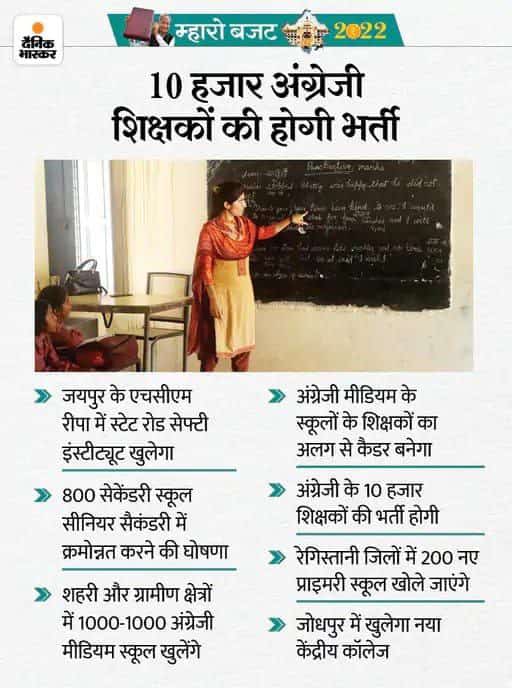 दैनिक
भास्कर
म्हारो बजट 2022
10 हजार अंग्रेजी
शिक्षकों की होगी भर्ती
Punctuation marks
जयपुर के एचसीएम
रीपा में स्टेट रोड सेफ्टी
इंस्टीट्यूट खुलेगा
800 सेकेंडरी स्कूल
सीनियर सैकंडरी में
क्रमोन्नत करने की घोषणा
शहरी और ग्रामीण क्षेत्रों
में 1000-1000 अंग्रेजी
मीडियम स्कूल खुलेंगे
अंग्रेजी मीडियम के
स्कूलों के शिक्षकों का
अलग से कैडर बनेगा
अंग्रेजी के 10 हजार
शिक्षकों की भर्ती होगी
रेगिस्तानी जिलों में 200 नए
प्राइमरी स्कूल खोले जाएंगे
जोधपुर में खुलेगा नया
केंद्रीय कॉलेज